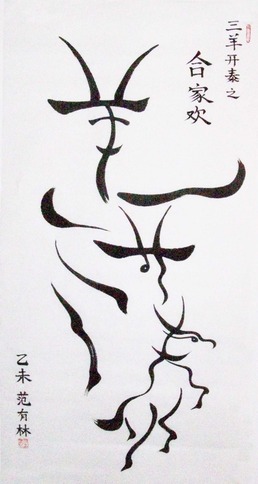 三羊开泰之
合家欢
乙未 范有林